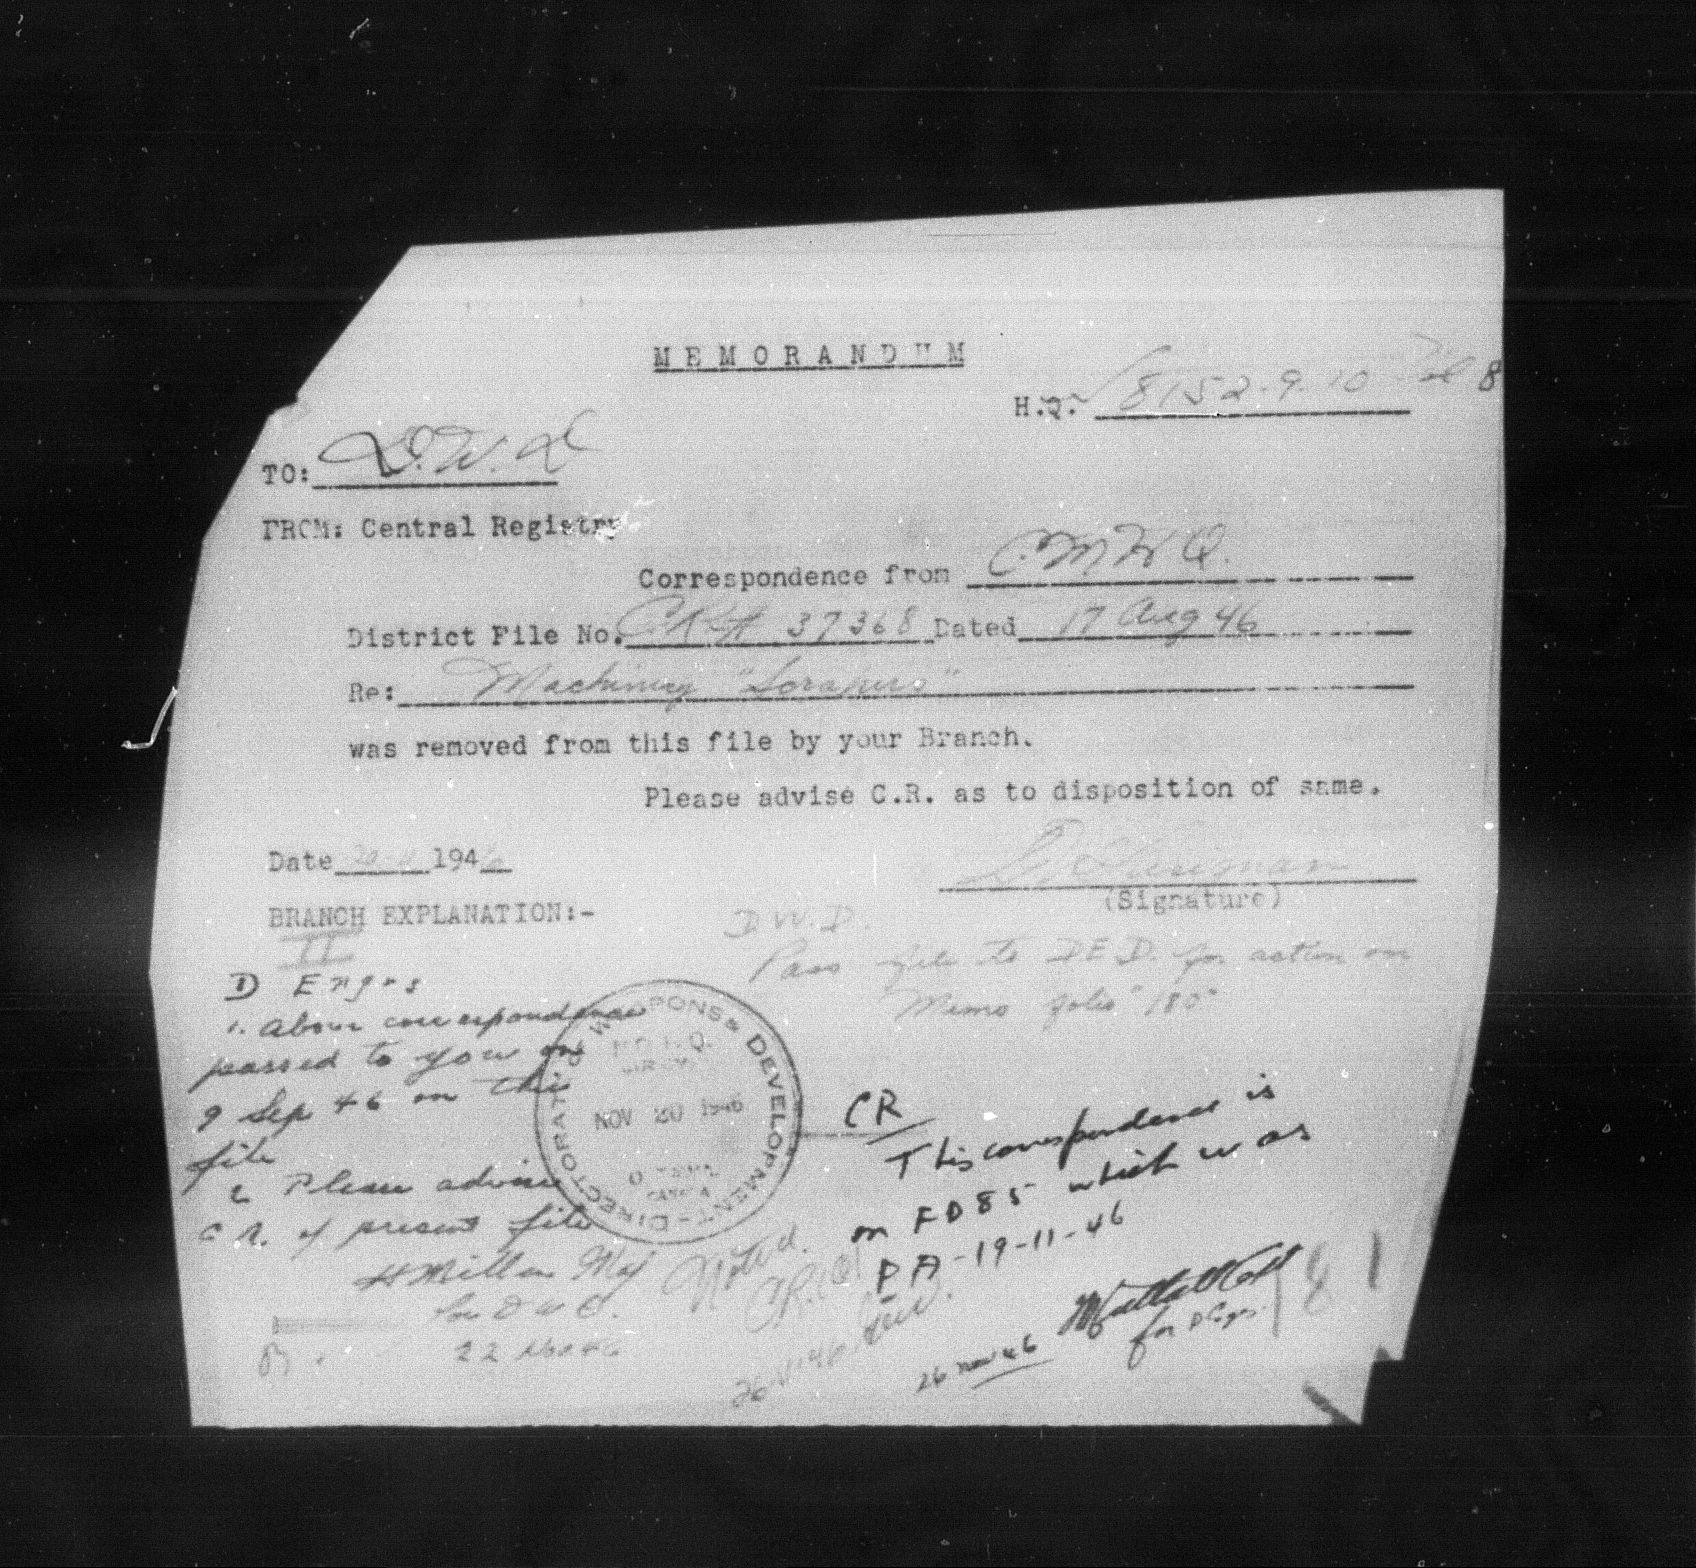 MEMORANDUM
H.Q. 8152-9-10 Vol 8
TO: D.W.D
FROM: Central Registry
Correspondence from C.M.H.Q.
District File No. 37368 Dated 17 Aug 46
Re: Machinery "Scrapers"
was removed from this file by your Branch.
Please advise C.R. as to disposition of same.
Date 20-11 1946
(Signature)
BRANCH EXPLANATION:-
D.W.D.
Pass file to D.E.D. for action on
Memo folio "180"
II
D Engrs
1. Above correspondence
passed to you on
9 Sep 46 on this
file
2 Please advise
C R. of present file
Millan Maj
for D W D.
22 Nov 46
DIRECTORATE OF WEAPONS & DEVELOPMENT
N.D.H.Q.
ARMY
NOV 20 1946
OTTAWA
CANADA
CR
This correspondence is
on FD85 which was
PA-19-11-46
for D Engrs
26 Nov 46
Noted.
181